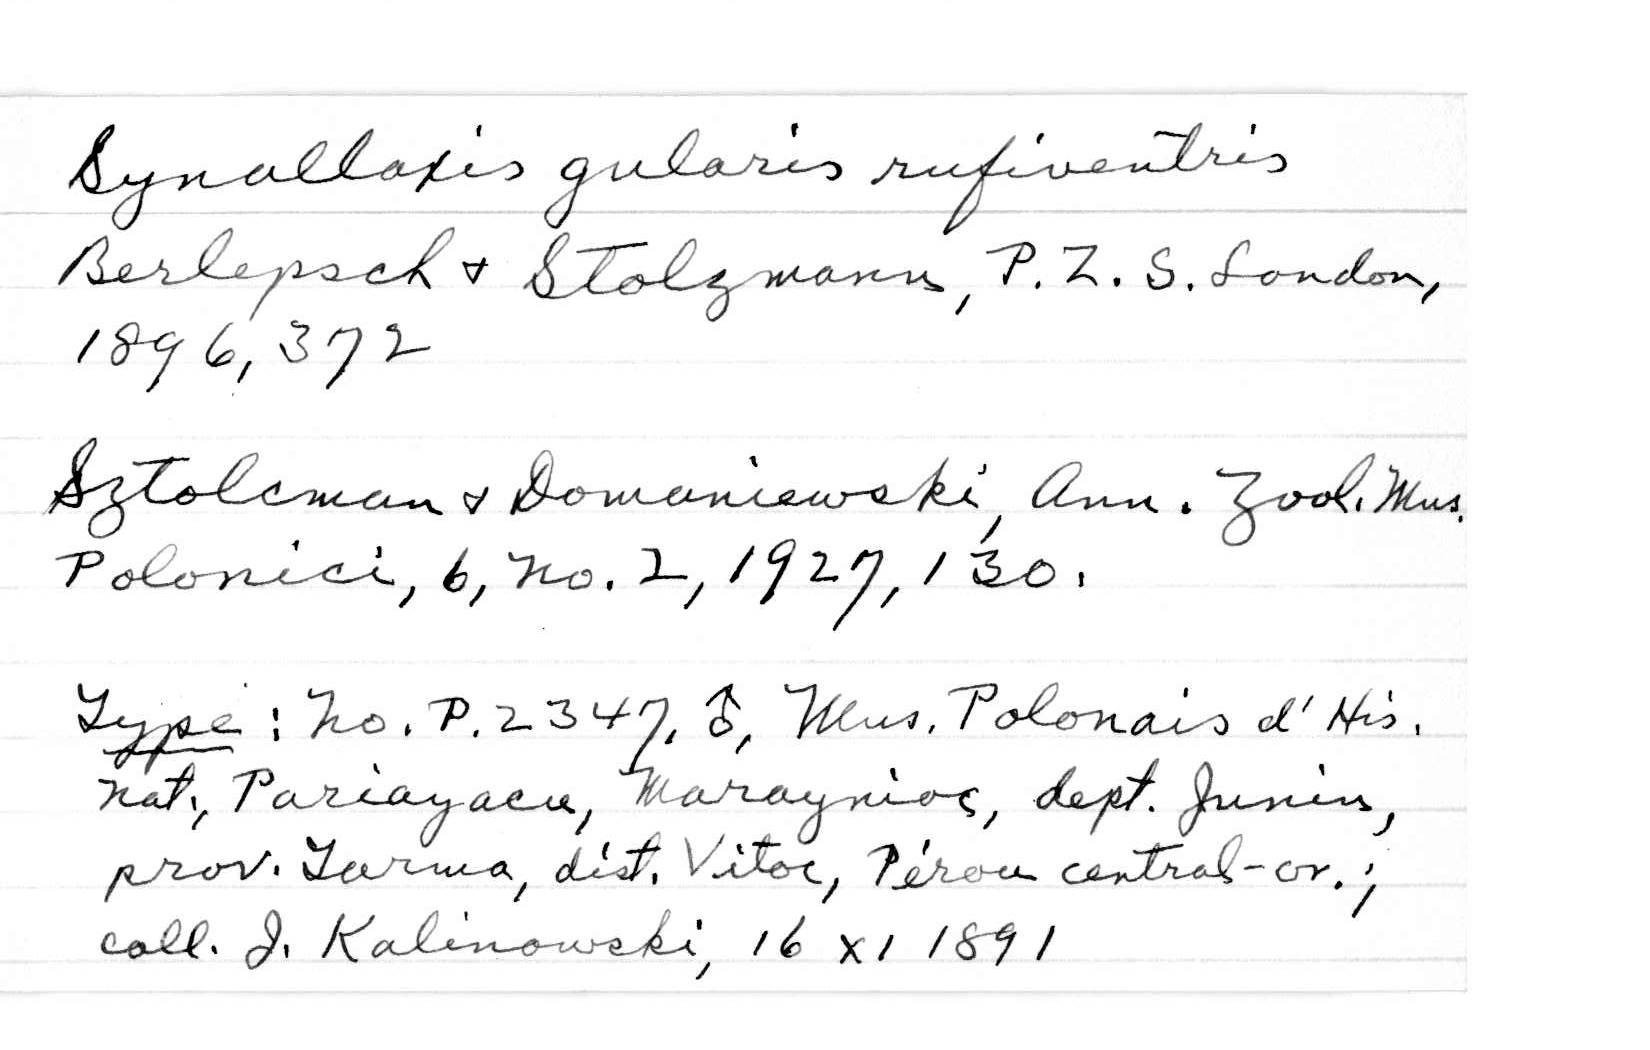 Synallaxis gularis rufiventris
Berlepsch & Stolzmann, P. Z. S. London,
1896, 372
Sztolcman & Domaniewski, Ann. Zool. Mus.
Polonici, 6, No. 2, 1927, 130.
Type: No. P. 2347, ♂, Mus. Polonais d'His.
Nat., Pariayacu, Maraynioc, dept. Junin,
prov. Tarma, dist. Vitoc, Pérou central-or.;
coll. J. Kalinowski, 16 XI 1891